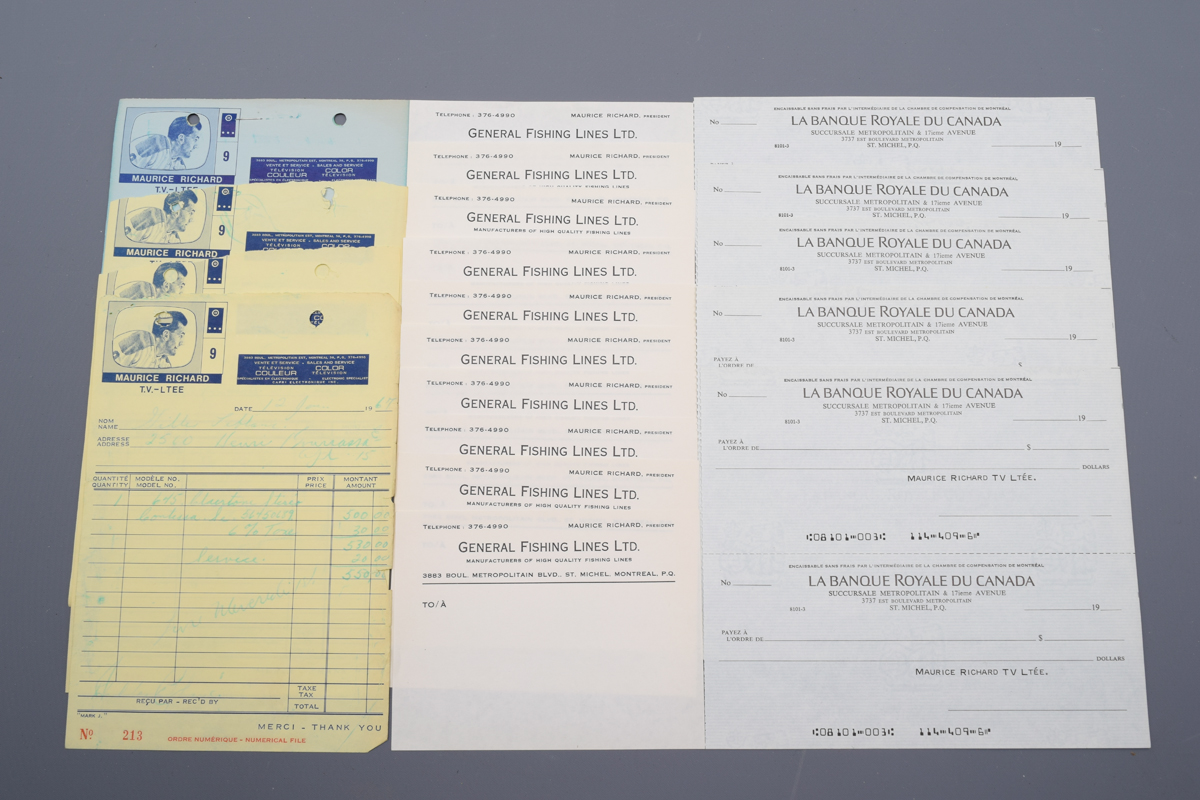 9
MAURICE RICHARD
T.V.-LTEE
VENTE ET SERVICE - SALES AND SERVICE
TÉLÉVISION COLOR
COULEUR TÉLÉVISION
9
MAURICE RICHARD
VENTE ET SERVICE - SALES AND SERVICE
TÉLÉVISION COLOR
9
MAURICE RICHARD
T.V.-LTEE
VENTE ET SERVICE - SALES AND SERVICE
TÉLÉVISION COLOR
COULEUR TÉLÉVISION
DATE 19 67
NOM
NAME
ADRESSE
ADDRESS 2500
QUANTITÉ MODÈLE NO. PRIX MONTANT
QUANTITY MODEL NO. PRICE AMOUNT
1
500 00
6% Tax 30 00
530 00
Service 20 00
550 00
TAXE
TAX
REÇU PAR - REC'D BY
TOTAL
"MARK J."
MERCI - THANK YOU
No 213
ORDRE NUMÉRIQUE - NUMERICAL FILE
TELEPHONE: 376-4990 MAURICE RICHARD, PRESIDENT
GENERAL FISHING LINES LTD.
TELEPHONE: 376-4990 MAURICE RICHARD, PRESIDENT
GENERAL FISHING LINES LTD.
TELEPHONE: 376-4990 MAURICE RICHARD, PRESIDENT
GENERAL FISHING LINES LTD.
MANUFACTURERS OF HIGH QUALITY FISHING LINES
TELEPHONE: 376-4990 MAURICE RICHARD, PRESIDENT
GENERAL FISHING LINES LTD.
TELEPHONE: 376-4990 MAURICE RICHARD, PRESIDENT
GENERAL FISHING LINES LTD.
TELEPHONE: 376-4990 MAURICE RICHARD, PRESIDENT
GENERAL FISHING LINES LTD.
TELEPHONE: 376-4990 MAURICE RICHARD, PRESIDENT
GENERAL FISHING LINES LTD.
TELEPHONE: 376-4990 MAURICE RICHARD, PRESIDENT
GENERAL FISHING LINES LTD.
TELEPHONE: 376-4990 MAURICE RICHARD, PRESIDENT
GENERAL FISHING LINES LTD.
MANUFACTURERS OF HIGH QUALITY FISHING LINES
TELEPHONE: 376-4990 MAURICE RICHARD, PRESIDENT
GENERAL FISHING LINES LTD.
MANUFACTURERS OF HIGH QUALITY FISHING LINES
3883 BOUL. METROPOLITAIN BLVD., ST. MICHEL, MONTREAL, P.Q.
TO/À
ENCAISSABLE SANS FRAIS PAR L'INTERMÉDIAIRE DE LA CHAMBRE DE COMPENSATION DE MONTRÉAL
No
LA BANQUE ROYALE DU CANADA
SUCCURSALE METROPOLITAIN & 17ieme AVENUE
3737 EST BOULEVARD METROPOLITAIN
8101-3 ST. MICHEL, P.Q. 19
ENCAISSABLE SANS FRAIS PAR L'INTERMÉDIAIRE DE LA CHAMBRE DE COMPENSATION DE MONTRÉAL
No
LA BANQUE ROYALE DU CANADA
SUCCURSALE METROPOLITAIN & 17ieme AVENUE
3737 EST BOULEVARD METROPOLITAIN
8101-3 ST. MICHEL, P.Q. 19
ENCAISSABLE SANS FRAIS PAR L'INTERMÉDIAIRE DE LA CHAMBRE DE COMPENSATION DE MONTRÉAL
No
LA BANQUE ROYALE DU CANADA
SUCCURSALE METROPOLITAIN & 17ieme AVENUE
3737 EST BOULEVARD METROPOLITAIN
8101-3 ST. MICHEL, P.Q. 19
ENCAISSABLE SANS FRAIS PAR L'INTERMÉDIAIRE DE LA CHAMBRE DE COMPENSATION DE MONTRÉAL
No
LA BANQUE ROYALE DU CANADA
SUCCURSALE METROPOLITAIN & 17ieme AVENUE
3737 EST BOULEVARD METROPOLITAIN
8101-3 ST. MICHEL, P.Q. 19
PAYEZ À
L'ORDRE DE $
ENCAISSABLE SANS FRAIS PAR L'INTERMÉDIAIRE DE LA CHAMBRE DE COMPENSATION DE MONTRÉAL
No
LA BANQUE ROYALE DU CANADA
SUCCURSALE METROPOLITAIN & 17ieme AVENUE
3737 EST BOULEVARD METROPOLITAIN
8101-3 ST. MICHEL, P.Q. 19
PAYEZ À
L'ORDRE DE $
DOLLARS
MAURICE RICHARD TV LTÉE.
⑆08101⑉003⑆ 114⑉409⑉6⑈
ENCAISSABLE SANS FRAIS PAR L'INTERMÉDIAIRE DE LA CHAMBRE DE COMPENSATION DE MONTRÉAL
No
LA BANQUE ROYALE DU CANADA
SUCCURSALE METROPOLITAIN & 17ieme AVENUE
3737 EST BOULEVARD METROPOLITAIN
8101-3 ST. MICHEL, P.Q. 19
PAYEZ À
L'ORDRE DE $
DOLLARS
MAURICE RICHARD TV LTÉE.
⑆08101⑉003⑆ 114⑉409⑉6⑈